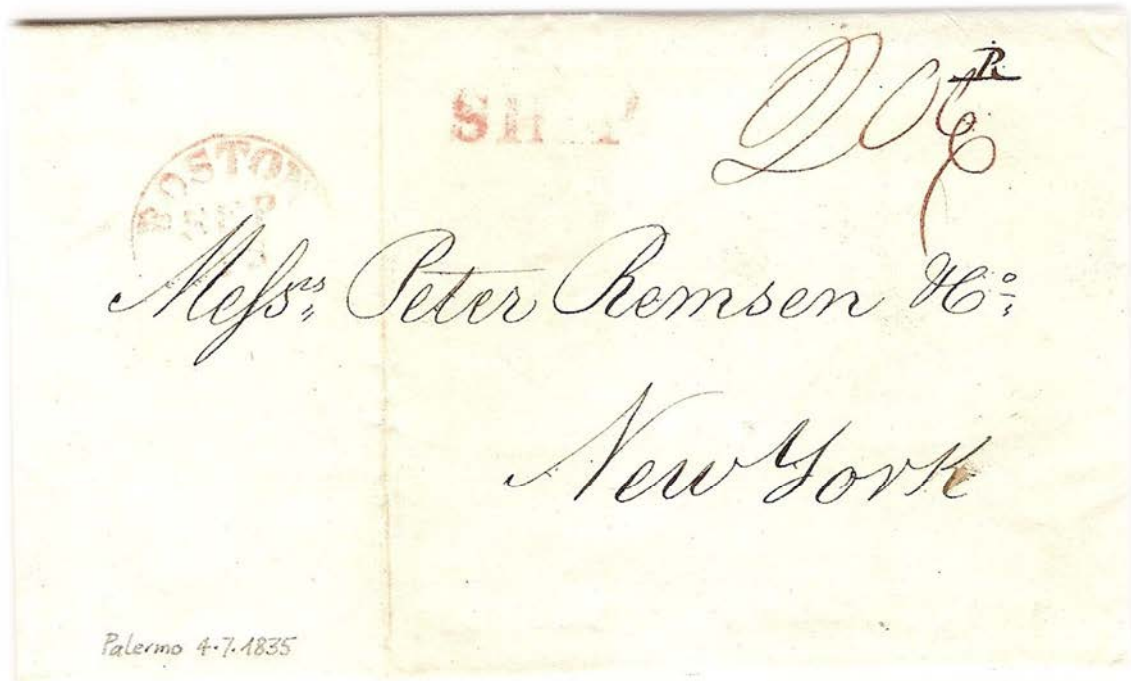 SHIP
BOSTON
SEP
Messrs, Peter Remsen & Co:
New York
Palermo 4.7.1835